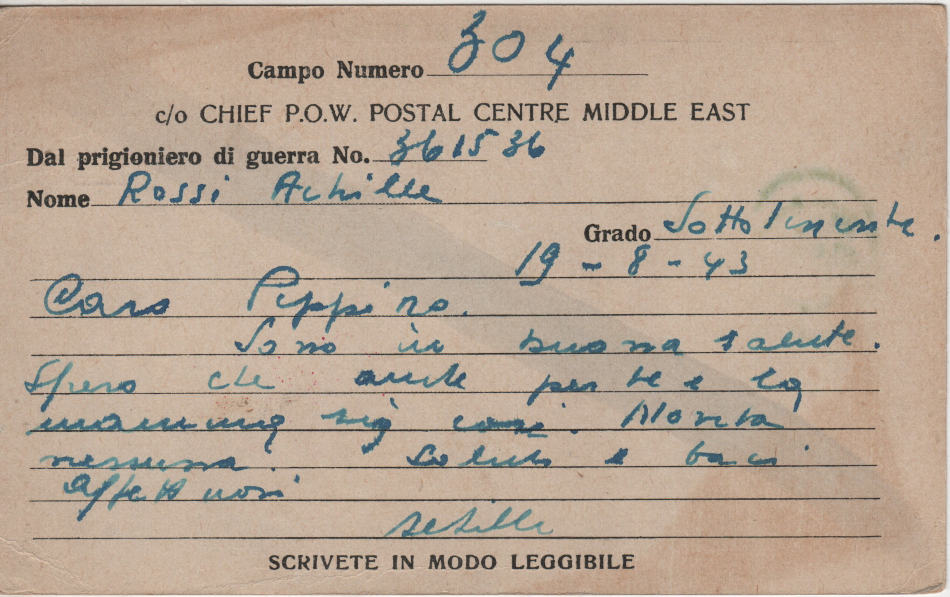 Campo Numero 304
c/o CHIEF P.O.W. POSTAL CENTRE MIDDLE EAST
Dal prigioniero di guerra No. 361536
Nome Rossi Achille
Grado Sotto Tenente.
19-8-43
Caro Peppino.
Sono in buona salute.
Spero che anche per te e la
mamma sia così. Novità
nessuna. Saluti e baci
affettuosi
Achille
SCRIVETE IN MODO LEGGIBILE